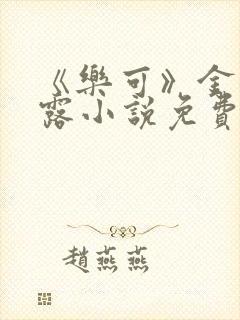 《樂可》金
露小說免費
趙燕燕